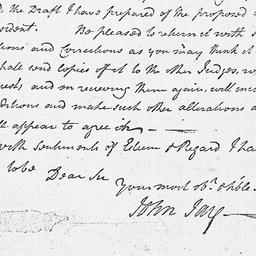 the Draft I have prepared of the proposed
sident. Be pleased to return it with s
tions and Corrections as you may think it
hall send copies of it to the other Judges, w
rests and on receiving them again, will in
ditions and make such other alterations a
ll appear to agree in —
with Sentiments of Esteem & Regard I ha
to be Dear Sir
Your most obt. & hble.
John Jay —